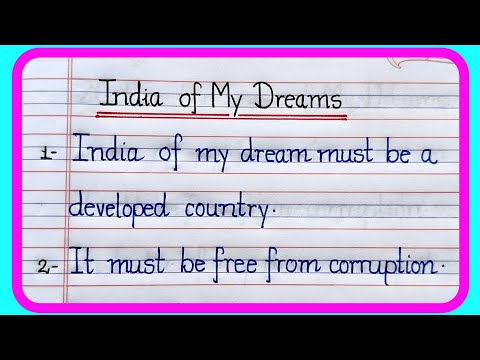 India of My Dreams
1- India of my dream must be a
developed country.
2- It must be free from corruption.